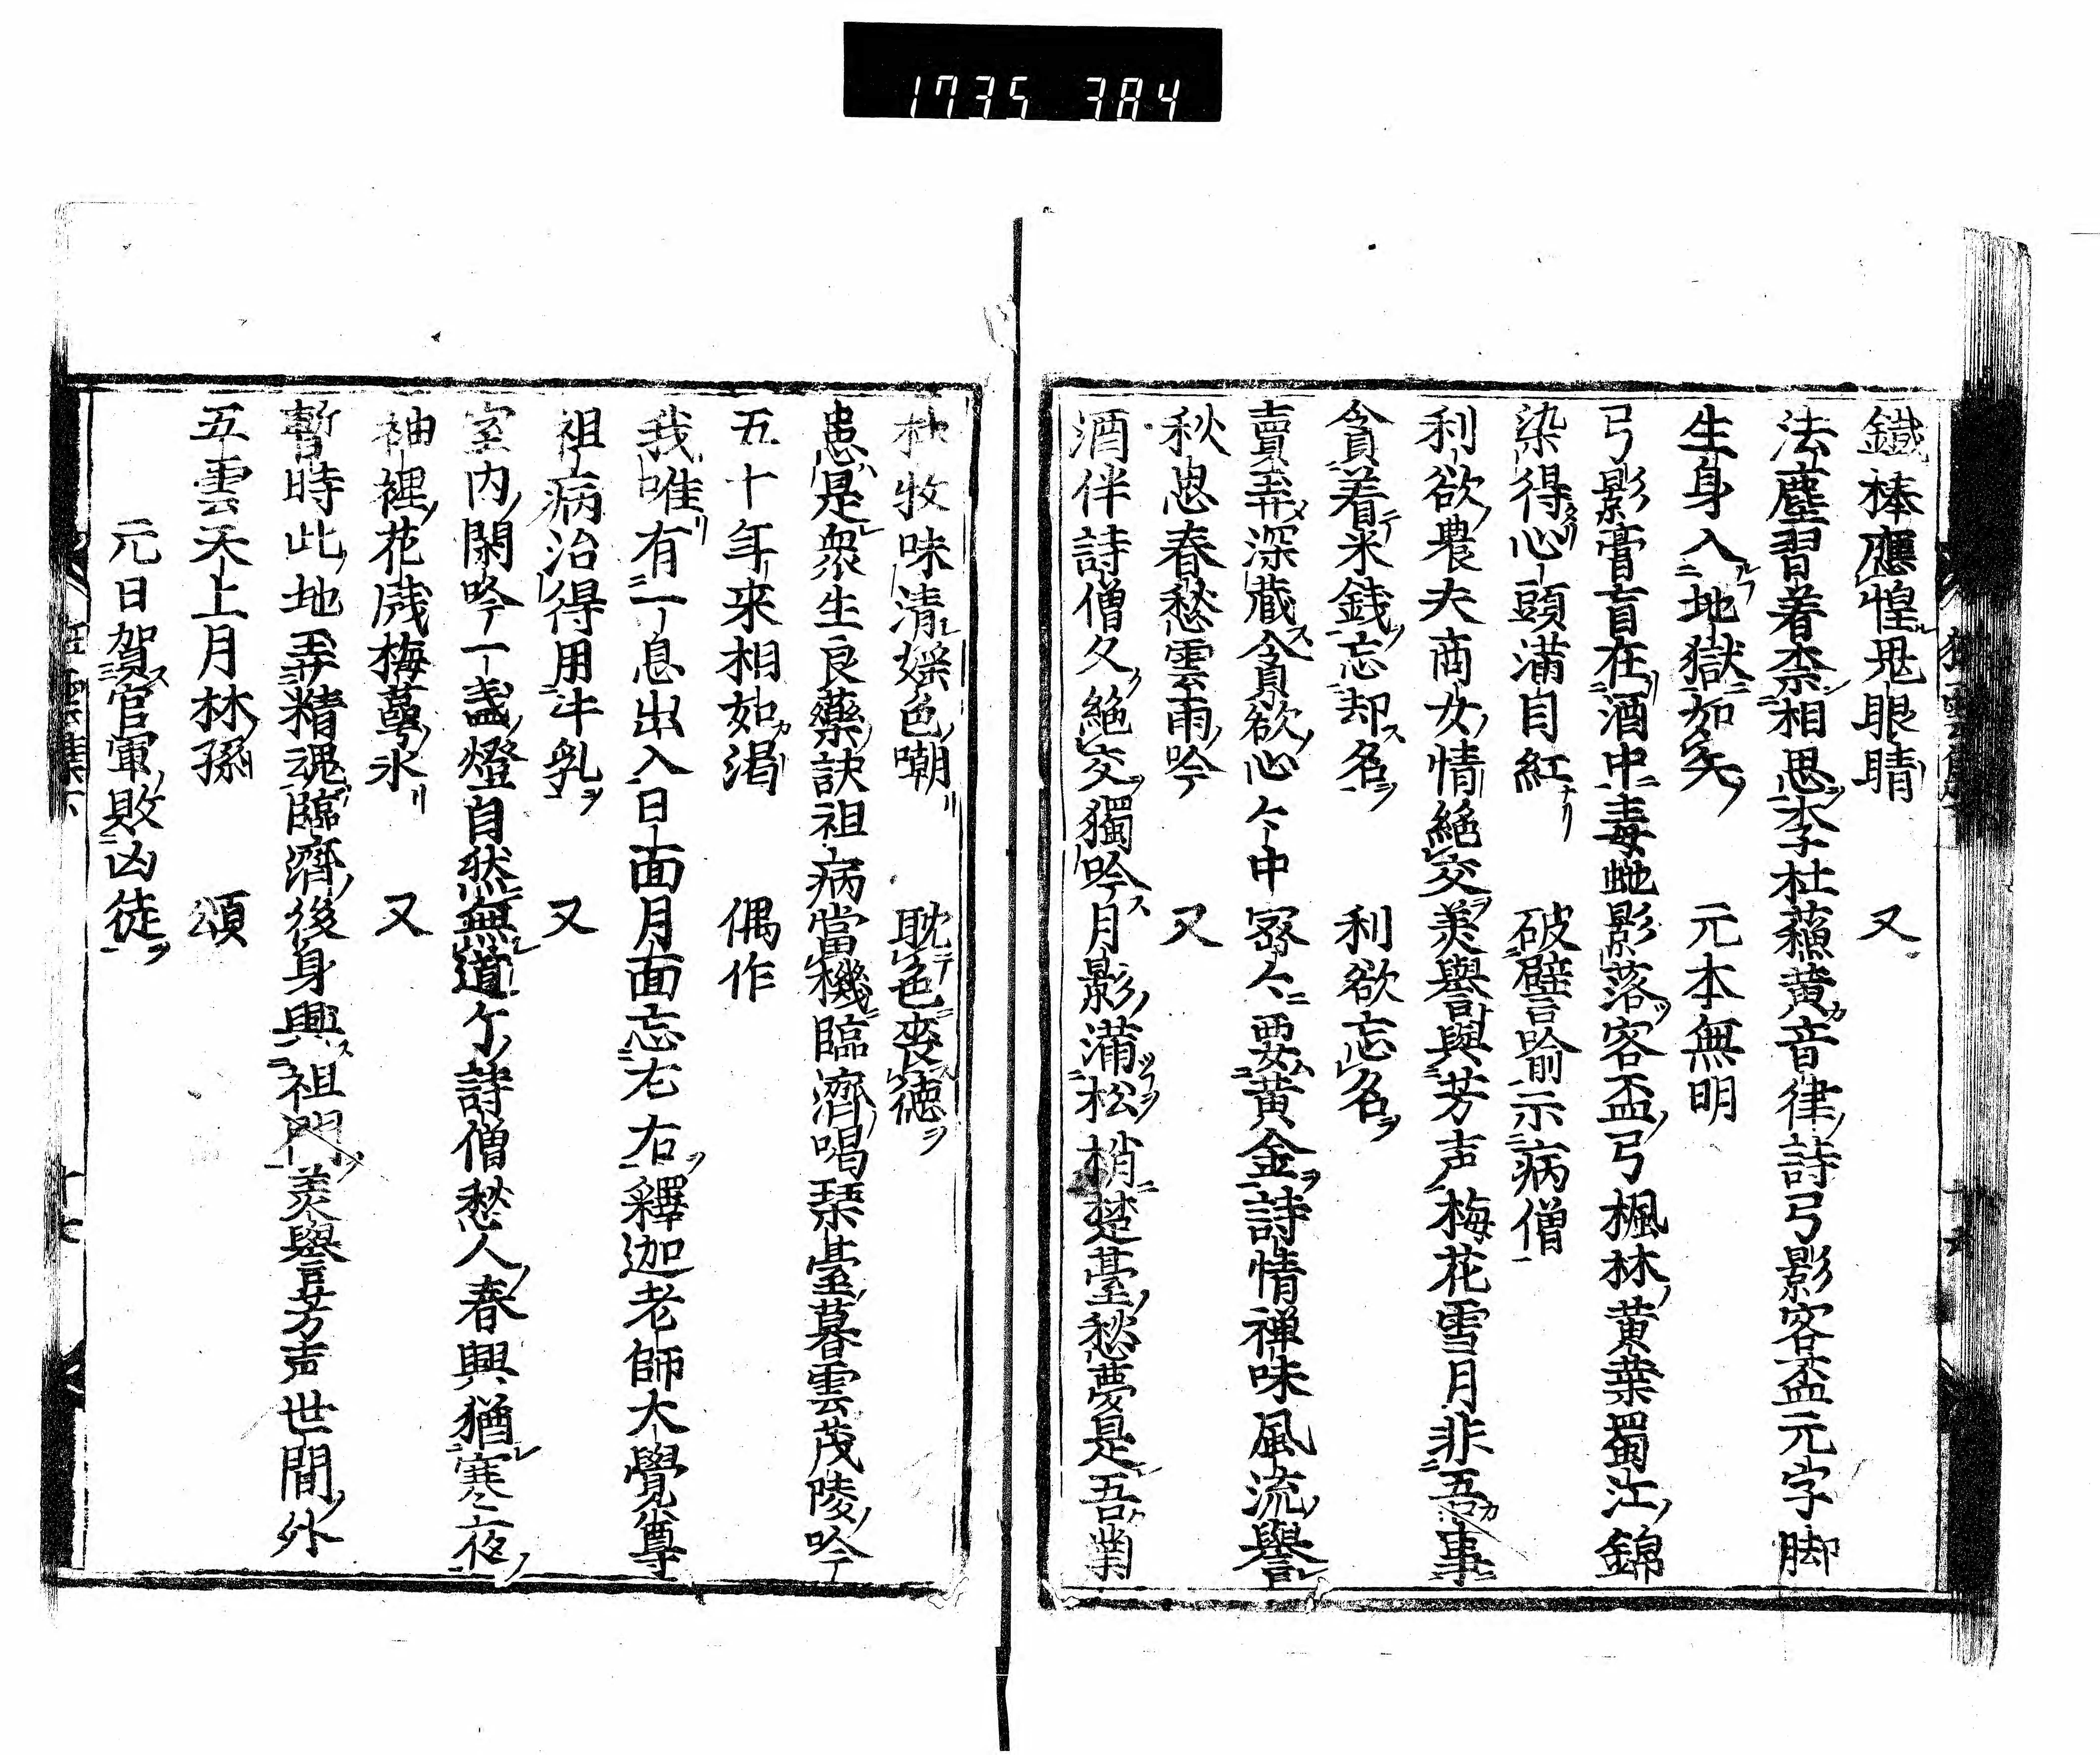 1735 384
鐵棒應惶鬼眼睛 又
法塵習着柰相思李杜蘓黄音律詩弓影客盃元字脚
生身入地獄如矢 元本無明
弓影膏盲在酒中毒虵影落客盃弓楓林黄葉蜀江錦
染得心頭滿目紅 破譬喻示病僧
利欲農夫商女情絶交美譽與芳声梅花雪月非吾事
貪着米錢忘却名 利欲忘名
賣弄深藏貪欲心心中密々要黄金詩情禅味風流譽
秋思春愁雲雨吟 又
酒伴詩僧久絶交獨吟月影滿松梢楚臺愁夢是吾業
杜牧味清婬色嘲 耽色喪徳
患是衆生良藥訣祖病當機臨濟喝琹臺暮雲茂陵吟
五十年来相如渇 偶作
我唯有一息出入日面月面忘左右釋迦老師大覺尊
祖病治得用牛乳 又
室内閑吟一盞燈自然無道个詩僧愁人春興猶寒夜
袖裡花戚梅萼氷 又
暫時此地弄精魂臨濟後身興祖門美譽芳声世間外
五雲天上月林孫 頌
元日賀官軍敗凶徒